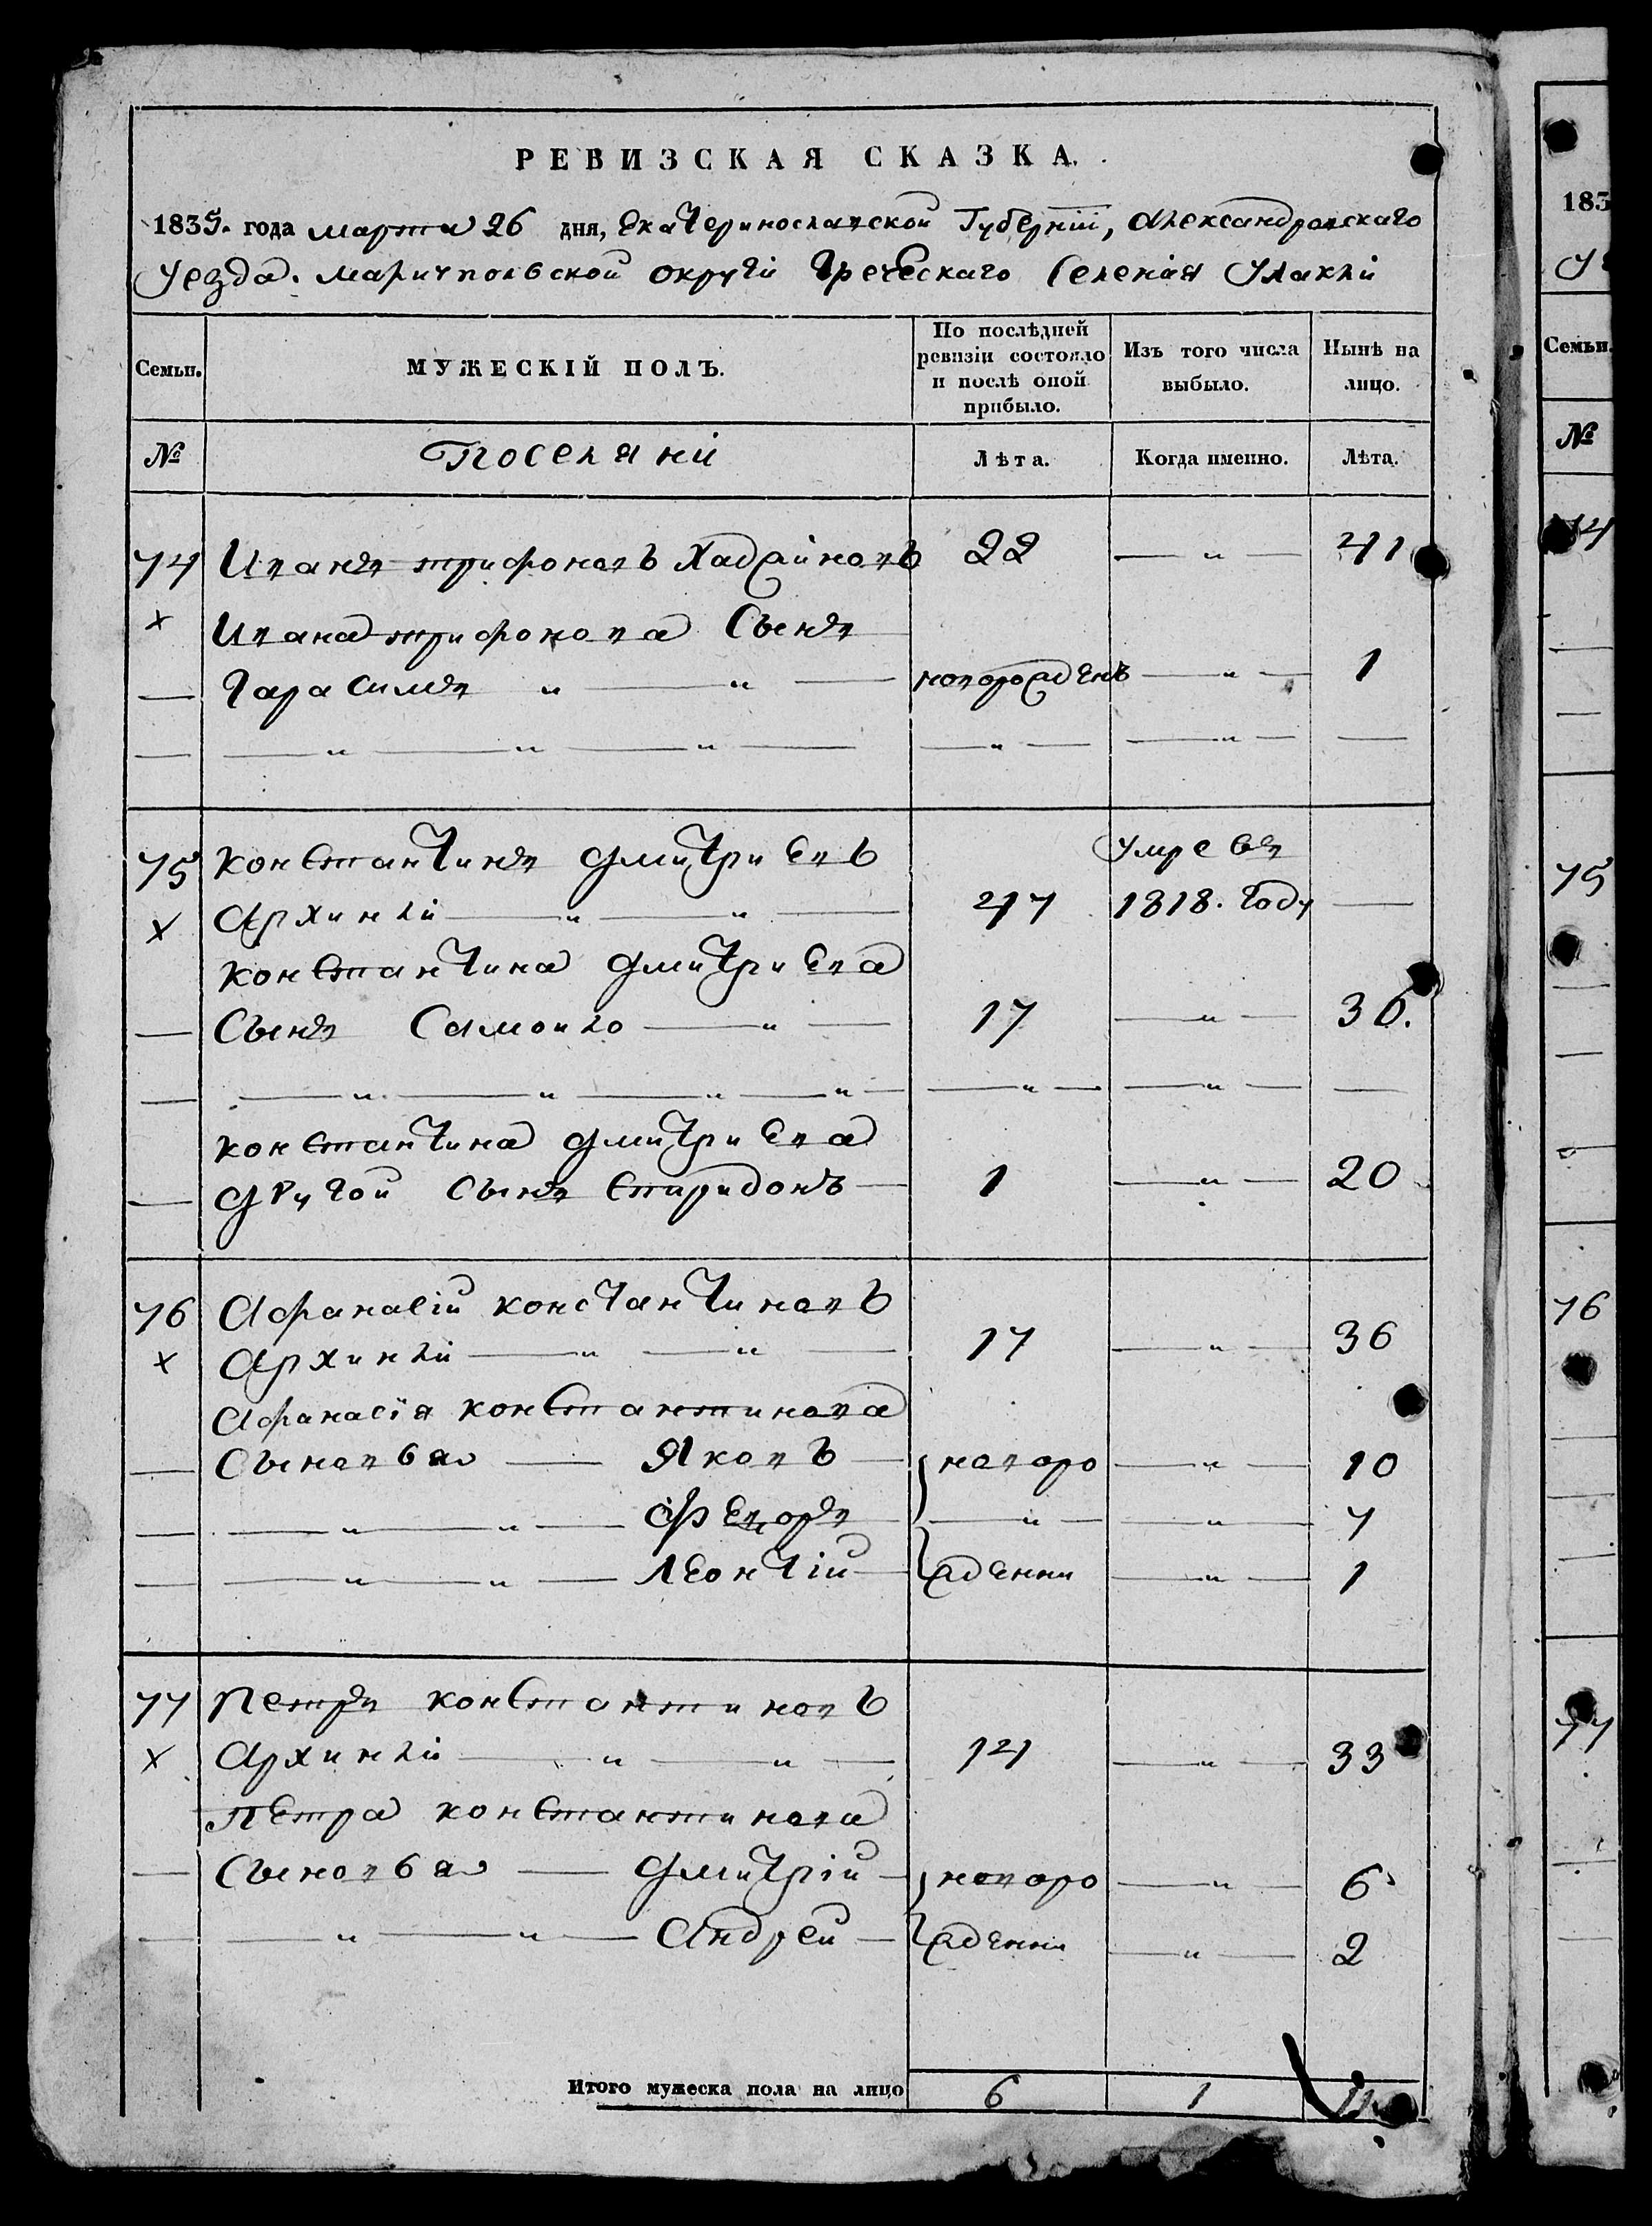 РЕВИЗСКАЯ СКАЗКА.
1835. года марта 26 дня, Екатеринославской Губерніи, Александровскаго
Уезда. Мариупольской округи Греческаго Селенія Улакли
Семьи.
МУЖЕСКІЙ ПОЛЪ.
По послѣдней ревизіи состояло и послѣ оной прибыло.
Изъ того числа выбыло.
Нынѣ на лицо.
№ Поселяни Лѣта. Когда именно. Лѣта.
74 Иванъ трифоновъ Хаджиновъ 22 — „ — 41
х Ивана трифонова Сынъ
— Гарасимъ „ — „ — новорожденъ — „ — 1
— — „ — „ — „ — — „ — — „ — —
75 Константинъ Дмитриевъ Умре въ
х Архинли — „ — „ — 47 1818. году —
Константина Дмитриева
— Сынъ Самоило — „ — 17 — „ — 36.
— — „ — „ — „ — „ — — „ — — „ — —
Константина Дмитриева
— Другой Сынъ Спиридонъ — 1 — „ — 20
76 Афанасіи Константиновъ
х Архинли — „ — „ — 17 — „ — 36
Афанасія Константинова
— Сыновья — Яковъ — новоро — „ — 10
— — „ — „ — Федоръ — — „ — — „ — 7
— — „ — „ — Леонтіи — ждении — „ — 1
77 Петръ Константиновъ
х Архинли — „ — „ — 14 — „ — 33
Петра Константинова
— Сыновья — Дмитріи — новоро — „ — 6
— — „ — „ — Андреи — ждении — „ — 2
Итого мужеска пола на лицо 6 1 11
183
У
Семьи.
№
74
75
76
77